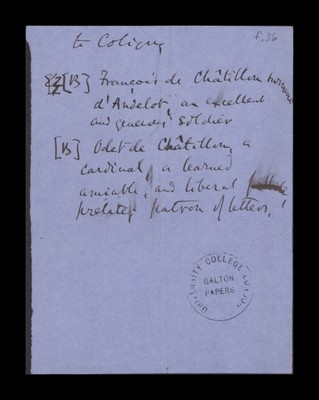 P. 36
to Coligny
[B] François de Châtillon surnomé
d'Andelot an excellent
and generous soldier
[B] Odet de Châtillon, a
cardinal, a learned
amiable, and liberal
prelate, patron of letters,
UNIVERSITY COLLEGE LONDON
GALTON
PAPERS